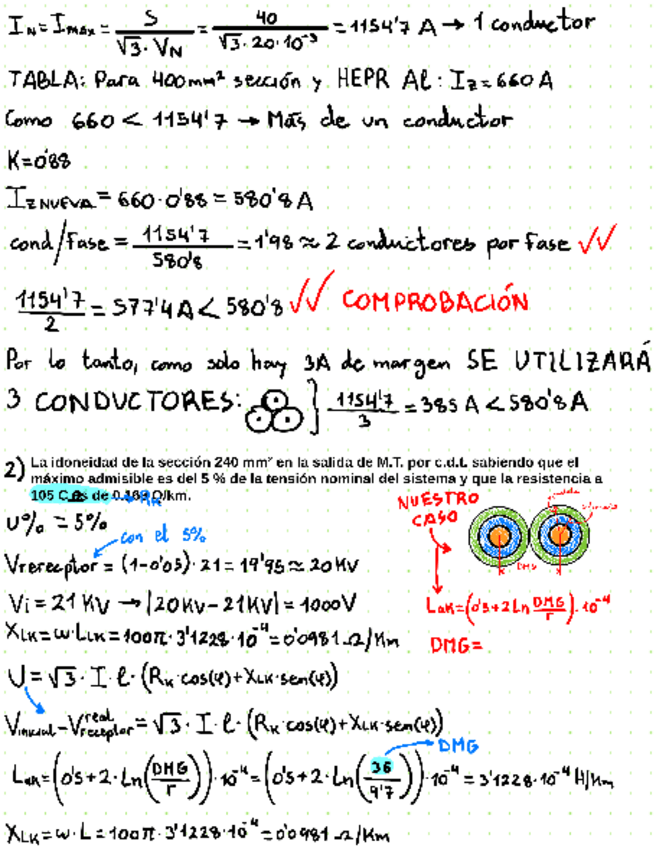 I_N = I_máx = S / (√3 · V_N) = 40 / (√3 · 20 · 10⁻³) = 1154'7 A → 1 conductor
TABLA: Para 400mm² sección y HEPR Al: I_z = 660 A
Como 660 < 1154'7 → Más de un conductor
K = 0'88
I_Z NUEVA = 660 · 0'88 = 580'8 A
cond/Fase = 1154'7 / 580'8 = 1'98 ≈ 2 conductores por Fase ✓✓
1154'7 / 2 = 577'4 A < 580'8 ✓✓ COMPROBACIÓN
Por lo tanto, como solo hay 3A de margen SE UTILIZARÁ
3 CONDUCTORES: } 1154'7 / 3 = 385 A < 580'8 A
2) La idoneidad de la sección 240 mm² en la salida de M.T. por c.d.t. sabiendo que el
máximo admisible es del 5 % de la tensión nominal del sistema y que la resistencia a
105 C es de 0.169 Ω/km.
NUESTRO
CASO
U% = 5%
con el 5%
V rereceptor = (1-0'05) · 21 = 19'95 ≈ 20 KV
DMG
Vi = 21 KV → |20KV - 21KV| = 1000V
L_aK = (0'5 + 2 Ln DMG/r) · 10⁻⁴
X_LK = ω · L_LK = 100π · 3'1228 · 10⁻⁴ = 0'0981 Ω/Km
DMG =
U = √3 · I · ℓ · (R_K · cos(φ) + X_LK · sen(φ))
V inicial - V receptor real = √3 · I · ℓ · (R_K · cos(φ) + X_LK · sen(φ))
DMG
L_aK = (0'5 + 2 · Ln(DMG/r)) · 10⁻⁴ = (0'5 + 2 · Ln(36/9'7)) · 10⁻⁴ = 3'1228 · 10⁻⁴ H/Km
X_LK = ω · L = 100π · 3'1228 · 10⁻⁴ = 0'0981 Ω/Km